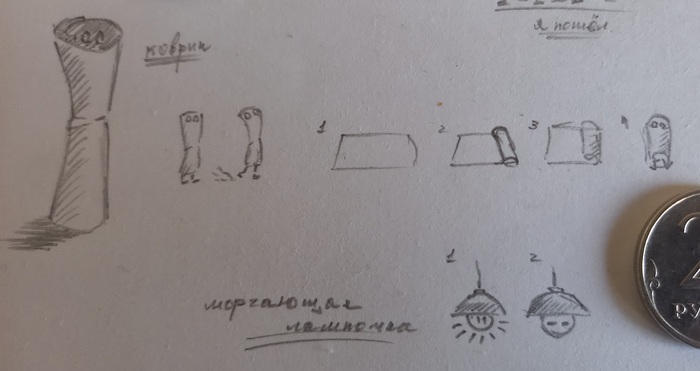 я пошёл
коврик
1 2 3 4
1 2
моргающая
лампочка
2
РУ